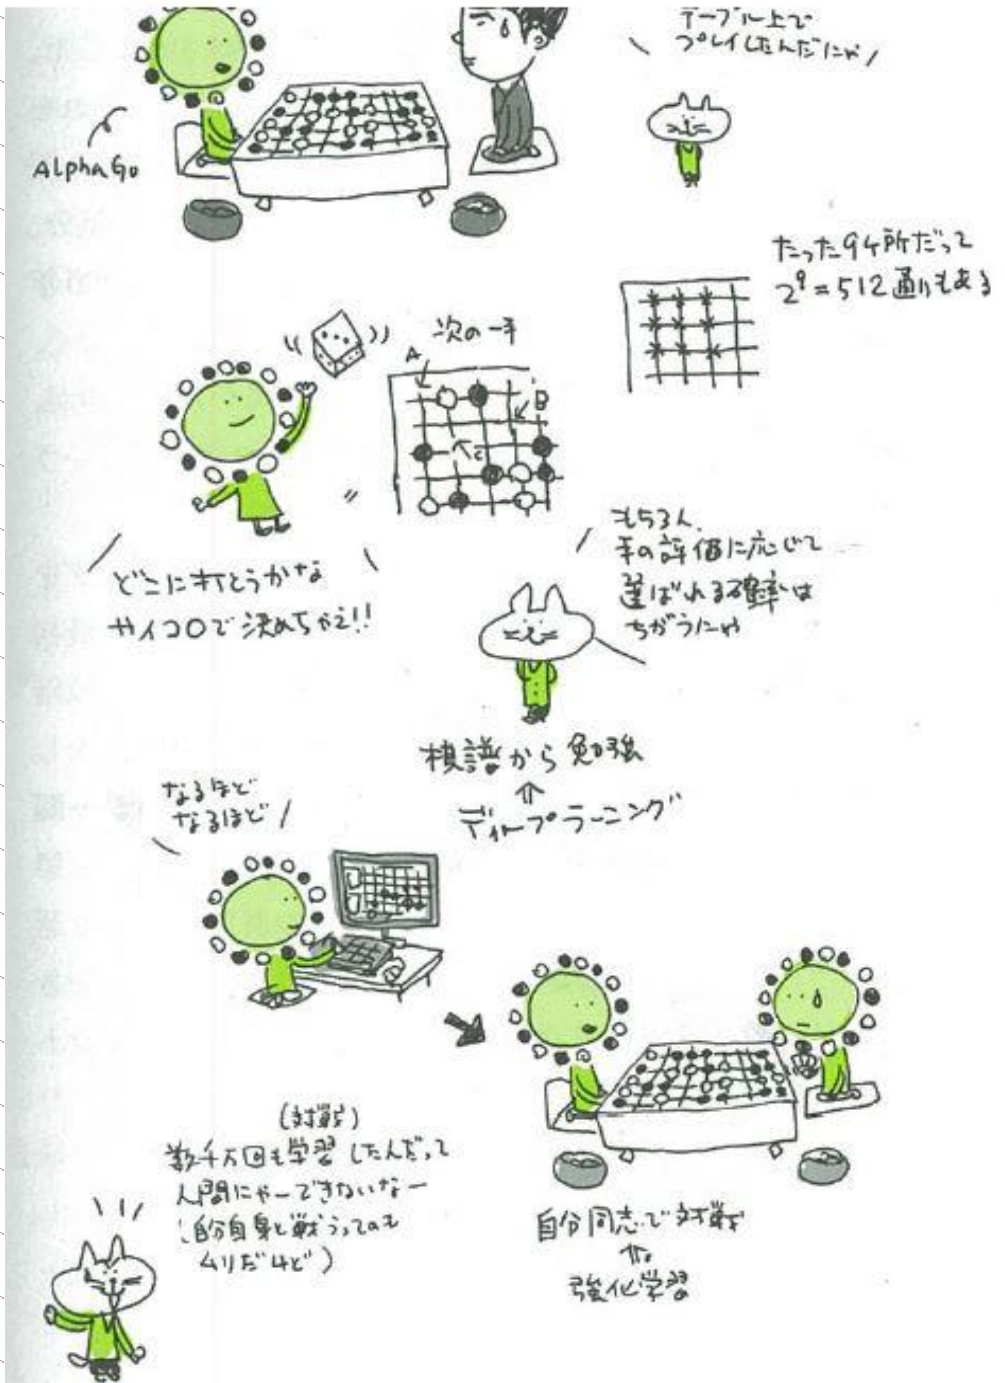 テーブル上で
プレイしたんだにゃ
AlphaGo
たった9ヶ所だって
2⁹=512通りもある
次の一手
A
B
C
どこに打とうかな
サイコロで決めちゃえ!!
もちろん、
手の評価に応じて
選ばれる確率は
ちがうにゃ
棋譜から勉強
⇑
ディープラーニング
なるほど
なるほど
(対戦)
数千万回も学習したんだって
人間にゃーできないなー
(自分自身と戦うってのも
ムリだけど)
自分同志で対戦
⇑
強化学習